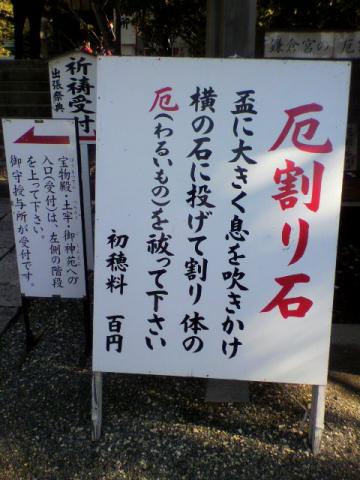 厄割り石
盃に大きく息を吹きかけ
横の石に投げて割り体の
厄(わるいもの)を祓って下さい
初穂料 百円
祈祷受付
出張祭典
宝物殿・土牢・御神苑への
入口(受付)は、左側の階段
を上って下さい。
御守授与所が受付です。
鎌倉宮の